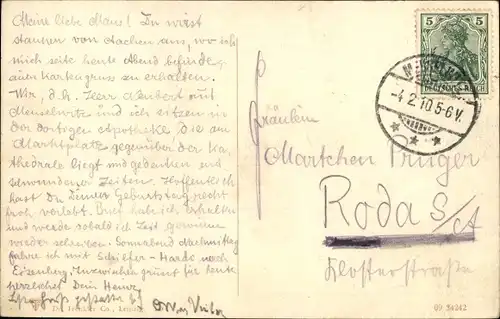 Meine liebe Maus! Du wirst
staunen von Aachen aus, wo ich
mich seit heute Abend befinde,
einen Kartengruss zu erhalten.
Wir, d. h. Herr aus
und ich sitzen in
der dortigen Apotheke die am
Marktplatz gegenüber der Ka,
thedrale liegt und gedenken
schwundener Zeiten. Hoffentlich
hast Du Deinen Geburtstag recht
froh verlebt. Brief hab ich erhalten
und werde sobald ich Zeit gewinne
wieder schreiben. Sonnabend Nachmittag
fahre ich mit Schiefer-Hardo nach
Eisenberg. Inzwischen grüßt für heute
herzlichst Dein Hans
5
5
DEUTSCHES REICH
-4.2.10.5-6V.
Fräulein
Martchen Prüger
Roda S/A
Klosterstraße
09 34242